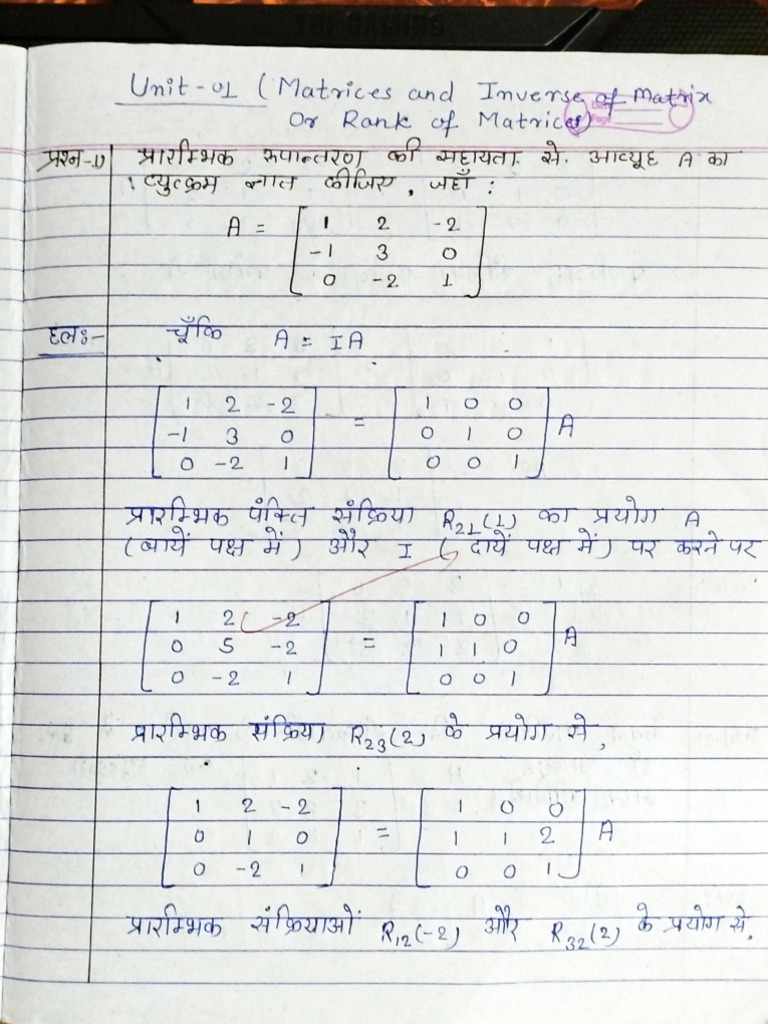 Unit-01 (Matrices and Inverse of Matrix
Or Rank of Matrices)
प्रश्न-1) प्रारम्भिक रूपान्तरण की सहायता से आव्यूह A का
व्युत्क्रम ज्ञात कीजिए, जहाँ :
A = [ 1 2 -2
-1 3 0
0 -2 1 ]
हलः- चूँकि A = IA
[ 1 2 -2 ] = [ 1 0 0 ] A
[ -1 3 0 ] [ 0 1 0 ]
[ 0 -2 1 ] [ 0 0 1 ]
प्रारम्भिक पंक्ति संक्रिया R21(1) का प्रयोग A
(बायें पक्ष में) और I (दायें पक्ष में) पर करने पर
[ 1 2 -2 ] = [ 1 0 0 ] A
[ 0 5 -2 ] [ 1 1 0 ]
[ 0 -2 1 ] [ 0 0 1 ]
प्रारम्भिक संक्रिया R23(2) के प्रयोग से,
[ 1 2 -2 ] = [ 1 0 0 ] A
[ 0 1 0 ] [ 1 1 2 ]
[ 0 -2 1 ] [ 0 0 1 ]
प्रारम्भिक संक्रियाओं R12(-2) और R32(2) के प्रयोग से,